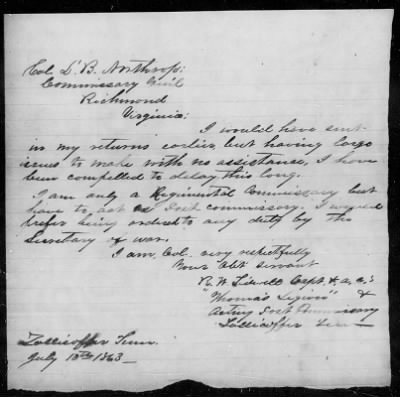 Col. L. B. Northrop:
Commissary Gen'l
Richmond
Virginia:
I would have sent
in my returns earlier but having large
issues to make with no assistance, I have
been compelled to delay this long.
I am only a Regimental Commissary but
have to act as Post commissary. I would
prefer being ordered to any duty by the
Secretary of war.
I am, Col. very respectfully
Your Obt servant
R. H. Capt. & a.c.s
"Thomas Legion" &
Acting Post Commissary
Zollicoffer Tenn
Zollicoffer Tenn.
July 13th 1863